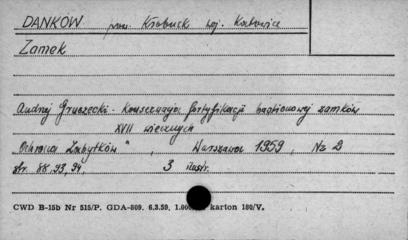 DANKÓW pow. Kłobuck woj. Katowice
Zamek
Andrzej Gruszecki - Konserwacja fortyfikacji bastionowej zamków
XVII wiecznych
Ochrona Zabytków" , Warszawa 1959, Nr 2
str. 88, 93, 94, 3 ilustr.
CWD B-15b Nr 515/P. GDA-809. 6.3.59. karton 180/V.